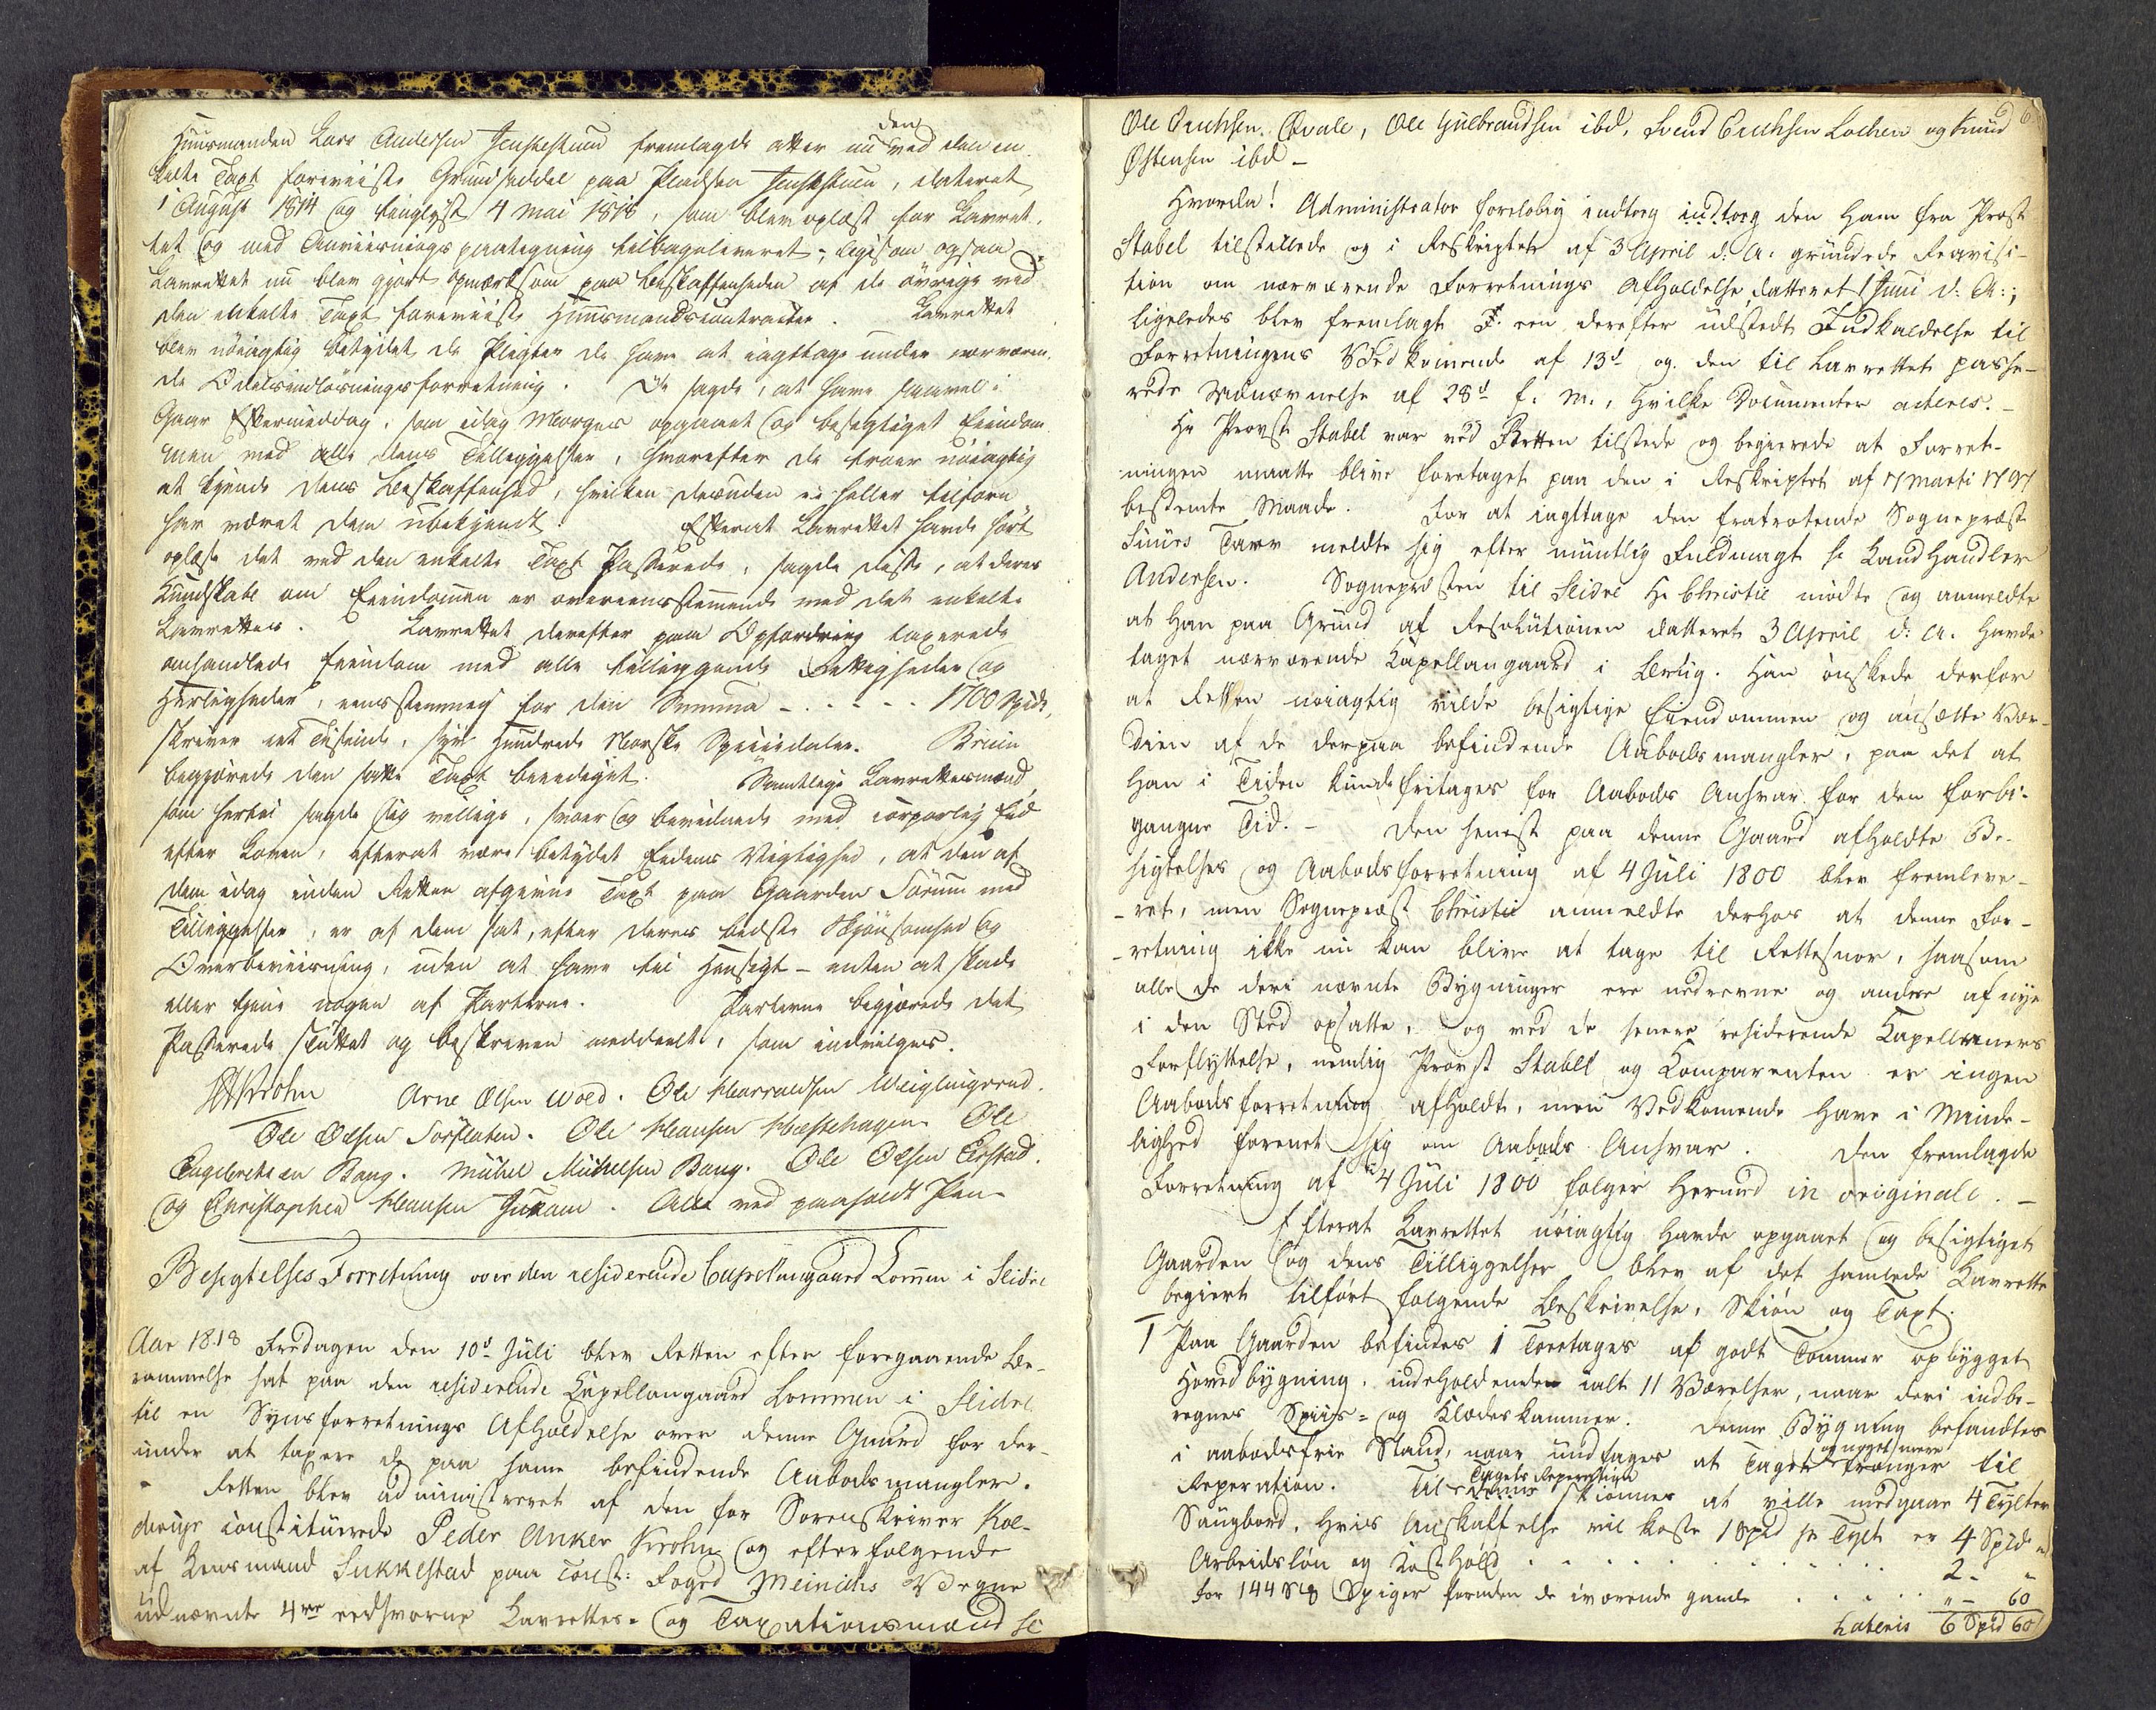 Huusmanden Lars Andersen Jenshestuen fremlagde atter nu ved den en
den
kelte Taxt foreviiste Grundseddel paa Pladsen Jensestuen, dateret
1 August 1814 og tinglyst 4 Mai 1818, som blev oplæst for Lavret-
tet og med Anviisnings paategning tilbageleveret; ligesom ogsaa
Lavrettet nu blev gjort opmærksom paa Beskaffenheden af de øvrige ved
den enkelte Taxt foreviiste Huusmandscontracter. Lavrettet
blev nøiagtig betydet de Pligter de have at iagttage under nærværen-
de Odelsindløsningsforretning. De sagde, at have saavel i
Gaar Eftermiddag, som idag Morges opgaaet og besigtiget Eiendom-
men med alle dens Tilleggelser, hvorefter de troer nøiagtig
at kjende dens Beskaffenhed, hvilken desuden ei heller tilforn
har været dem ubekjendt. Efterat Lavrettet havde hørt
oplæse det ved den enkelte Taxt Passerede, sagde disse, at deres
Kundskab om Eiendommen er overeensstemmende med det enkelte
Lavrettes. Lavrettet derefter paa Opfordring taxerede
omhandlede Eiendom med alle tilliggende Rettigheder og
Herligheder, eensstemmig for den Summa - - - - - 1700 Spd,
skriver et Tusinde, syv Hundrede Norske Speciedaler. Bruun
begjærede den satte Taxt beediget. Samtlige Lavrettesmænd,
som hertil sagde sig villige, svoer og bevidnede med corporlig Eed
efter Loven, efterat være betydet Eedens Vigtighed, at den af
dem idag inden Retten afgivne Taxt paa Gaarden Sørum med
Tilliggelser, er af dem sat, efter deres bedste Skjønsomhed og
Overbeviisning, uden at have til Hensigt - enten at skade
eller tjene nogen af Parterne. Parterne begjærede det
Passerede sluttet og beskreven meddeelt, som indvilges.
Krohn Arne Olsen Wold. Ole Haraldsen
Ole Olsen Sørflaten. Ole Hansen Hestehagen. Ole
Engebretsen Bang. Mikkel Mikkelsen Bang. Ole Olsen
og Christopher Hansen. Alle med paaholdt Pen.
Besigtelses Forretning over den residerende Capellangaard Lomen i Slidre
Aar 1818 Fredagen den 10d Juli blev Retten efter foregaaende Be-
rammelse sat paa den residerende Kapellangaard Lommen i Slidre
til en Synsforretnings Afholdelse over denne Gaard for der-
under at taxere de paa samme befindende Aabodsmangler.
- Retten blev administreret af den for Sorenskriver Kol-
derup constituerede Peder Anker Krohn og efterfølgende
af Lensmand Sukkestad paa const: Foged Meinichs Vegne
udnævnte 4re eedsvorne Lavrettes- og Taxationsmænd sc
Ole Erichsen Qvale, Ole Gulbrandsen ibd, Svend Erichsen Lochen og Knud
Østensen ibd -
Hvorda! Administrator foreløbig indtog indtog den ham fra Provst
Stabel tilstillede og i Reskriptet af 3 April d: A: grundede Reqvisi-
tion om nærværende Forretnings Afholdelse datteret 1 Juni d: A:;
ligeledes blev fremlagt een derefter udstedt Indkaldelse til
Forretningens Vedkommende af 13d og den til Lavrettet passe-
rede Udnævnelse af 28d f: M:, hvilke Documenter acteres. -
Hr Provst Stabel var ved Retten tilstede og begierede at Forret-
ningen maatte blive foretaget paa den i Reskriptet af 17 Marti 1797
bestemte Maade. For at iagttage den fratrædende Sognepræst
Tarv meldte sig efter mundtlig Fuldmagt Hr Landhandler
Andersen. Sognepræsten til Slidre Hr Christie mødte og anmeldte
at han paa Grund af Resolutionen datteret 3 April d: A. havde
taget nærværende Kapellangaard i Brug. Han ønskede derfor
at Retten nøiagtig vilde besigtige Eiendommen og ansætte Vær-
dien af de derpaa befindende Aabodsmangler, paa det at
han i Tiden kunde fritages for Aabods Ansvar for den forbi-
gangne Tid. - Den seneste paa denne Gaard afholdte Be-
sigtelses og Aabodsforretning af 4 Juli 1800 blev fremleve-
-ret, men Sognepræst Christie anmeldte derhos at denne For-
-retning ikke nu kan blive at tage til Rettesnor, saasom
alle de deri nævnte Bygninger ere nedrevne og andere af nye
i den Sted opsatte, og ved de senere residerende Kapellaners
Forflyttelse, nemlig Provst Stabel og Comparenten er ingen
Aabodsforretning afholdt, men Vedkommende have i Minde-
lighed forenet sig om Aabods Ansvar. Den fremlagde
Forretning af 4 Juli 1800 følger herved in originali. -
Efterat Lavrettet nøiagtig havde opgaaet og besigtiget
Gaarden og dens Tilliggelser blev af det samlede Lavrette
begiert tilført følgende Beskrivelse, Skiøn og Taxt.
1 Paa Gaarden befindes 1 Toetages af godt Tømmer opbygget
Hovedbygning, indeholdende ialt 11 Værelser, naar deri indbe-
regnes Spiis- og Klædeskammer. Denne Bygning befandtes
i aabodsfrie Stand, naar undtages at Taget trænger til
og noget mere
Reperation. Til denne skiønnes at ville medgaae 4 Tylter
Tagets Reperation
Saugbord, hvis Anskaffelse vil koste 1 Spd pr Tylt er 4 Spd "
Arbeidsløn og Kosthold . . . . . . . . 2 - "
For 144 Stk Spiger foruden de iværende gamle . . . . " - 60
Lateris 6 Spd 60